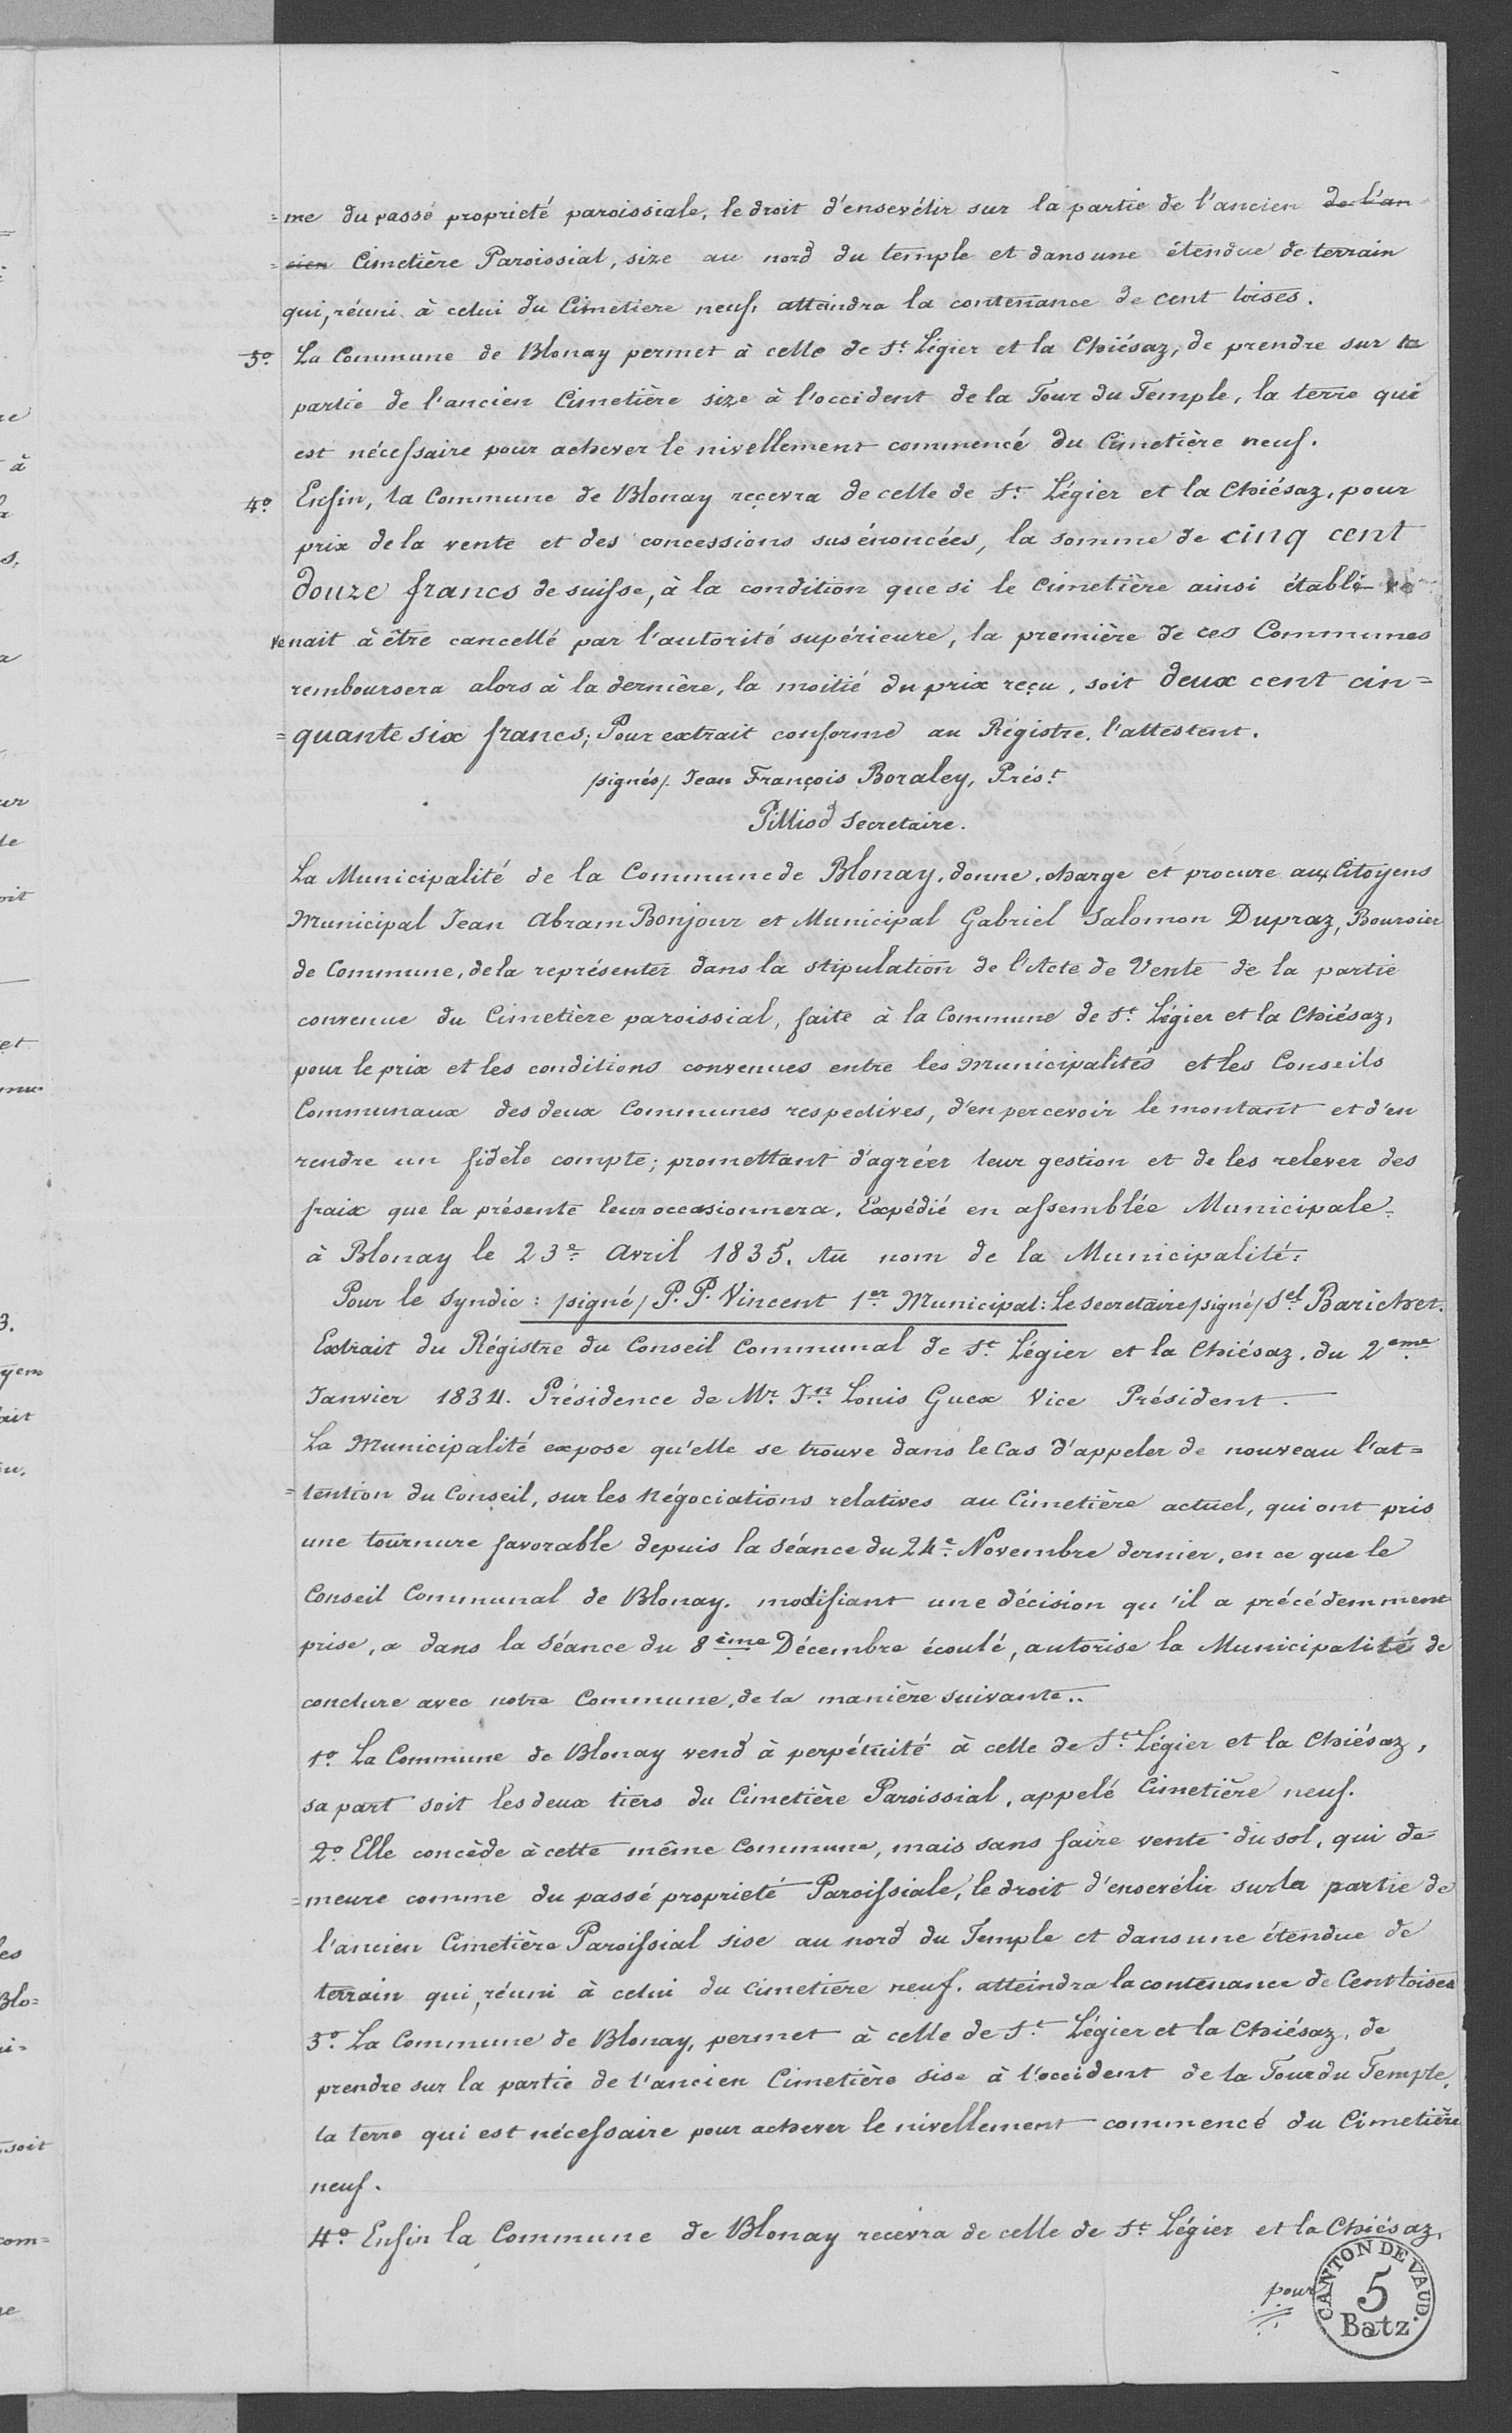 =me du passé proprieté paroissiale, le droit d'ensevélir sur la partie de l'ancien de l'an
=cien Cimetière Paroissial, size au nord du temple et dans une étendue de terrain
qui, réuni à celui du Cimetiere neuf, atteindra la contenance de cent toises.
3º La Commune de Blonay permet à celle de St Légier et la Chiésaz, de prendre sur la
partie de l'ancien Cimetière size à l'occident de la Tour du Temple, la terre qui
est nécessaire pour achever le nivellement commencé du Cimetière neuf.
4º Enfin, la Commune de Blonay reçevra de celle de St Légier et la Chiésaz, pour
prix de la vente et des concessions susénoncées, la somme de cinq cent
douze francs de suisse, à la condition que si le cimetière ainsi établi
venait à être cancellé par l'autorité supérieure, la première de ces Communes
remboursera alors à la dernière, la moitié du prix reçu, soit deux cent cin=
=quante six francs; Pour extrait conforme au Régistre, l'attestent.
/signés/ Jean François Boraley, Prést
Pilliod Secretaire.
La Municipalité de la Commune de Blonay, donne, charge et procure aux Citoyens
Municipal Jean Abram Bonjour et Municipal Gabriel Salomon Dupraz, Boursier
de Commune, de la représenter dans la stipulation de l'Acte de Vente de la partie
convenue du Cimetière paroissial, faite à la Commune de St Légier et la Chiésaz,
pour le prix et les conditions convenues entre les Municipalités et les Conseils
Communaux des deux Communes respectives, d'en percevoir le montant et d'en
rendre un fidèle compte; promettant d'agréer leur gestion et de les relever des
fraix que la présente leur occasionnera. Expédié en assemblée Municipale
à Blonay le 23e Avril 1835. Au nom de la Municipalité:
Pour le Syndic: /signé/ P. P. Vincent 1er Municipal: Le secretaire /signé/ Sel Barichet.
Extrait du Régistre du Conseil Communal de St Légier et la Chiésaz, du 2eme
Janvier 1834. Présidence de Mr Jn Louis Guex Vice Président.
La Municipalité expose qu'elle se trouve dans le Cas d'appeler de nouveau l'at=
=tention du Conseil, sur les Négociations relatives au Cimetière actuel, qui ont pris
une tournure favorable depuis la Séance du 24e Novembre dernier, en ce que le
Conseil Communal de Blonay, modifiant une décision qu'il a précédemment
prise, a dans la Séance du 8ème Décembre écoulé, autorise la Municipalité de
conclure avec notre Commune, de la manière suivante..
1º La Commune de Blonay vend à perpétuité à celle de St Légier et la Chiésaz,
sa part soit les deux tiers du Cimetière Paroissial, appelé Cimetière neuf.
2º Elle concède à cette même Commune, mais sans faire vente du sol, qui de
=meure comme du passé proprieté Paroissiale, le droit d'ensevélir sur la partie de
l'ancien Cimetière Paroissial sise au nord du Temple et dans une étendue de
terrain qui, réuni à celui du Cimetiere neuf, atteindra la contenance de Cent toises
3º La Commune de Blonay, permet à celle de St Légier et la Chiésaz, de
prendre sur la partie de l'ancien Cimetière sise à l'occident de la Tour du Temple,
la terre qui est nécessaire pour achever le nivellement commencé du Cimetière
neuf.
4º Enfin la Commune de Blonay recevra de celle de St Légier et la Chiésaz,
pour
CANTON DE VAUD.
5
Batz